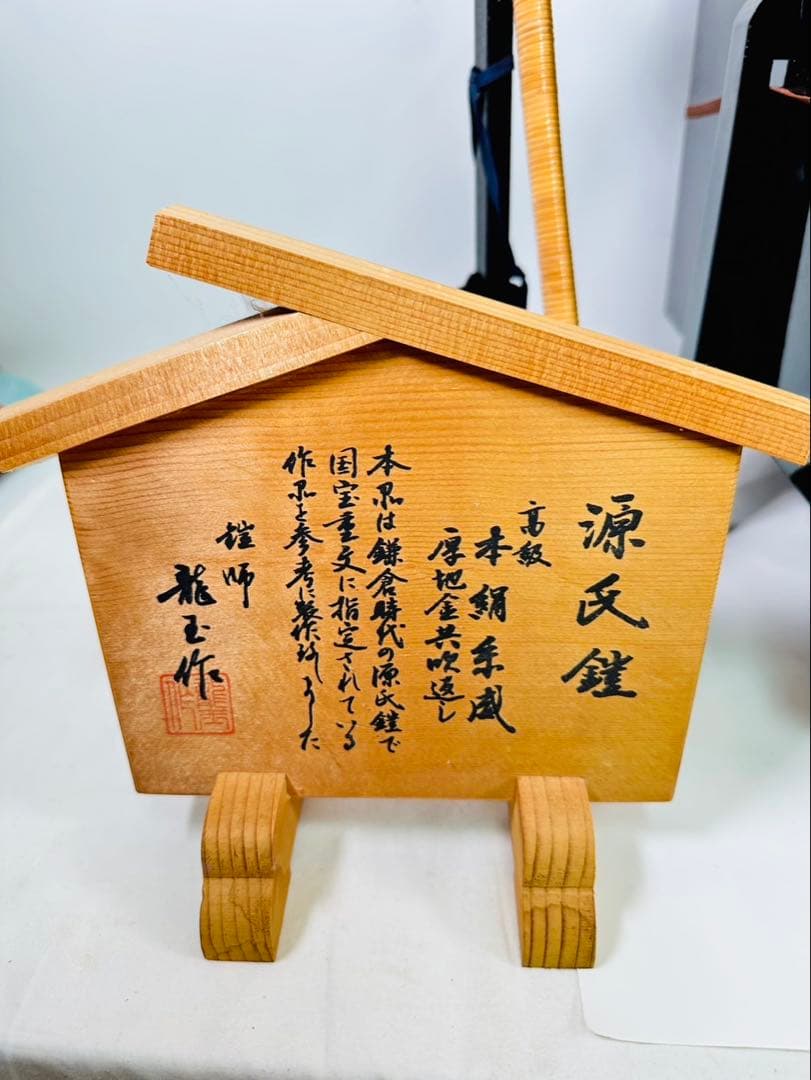 源氏鎧
高級
本絹糸威
厚地金共吹返し
本品は鎌倉時代の源氏鎧で
国宝重文に指定されている
作品を参考に製作致しました
鎧師
龍玉作